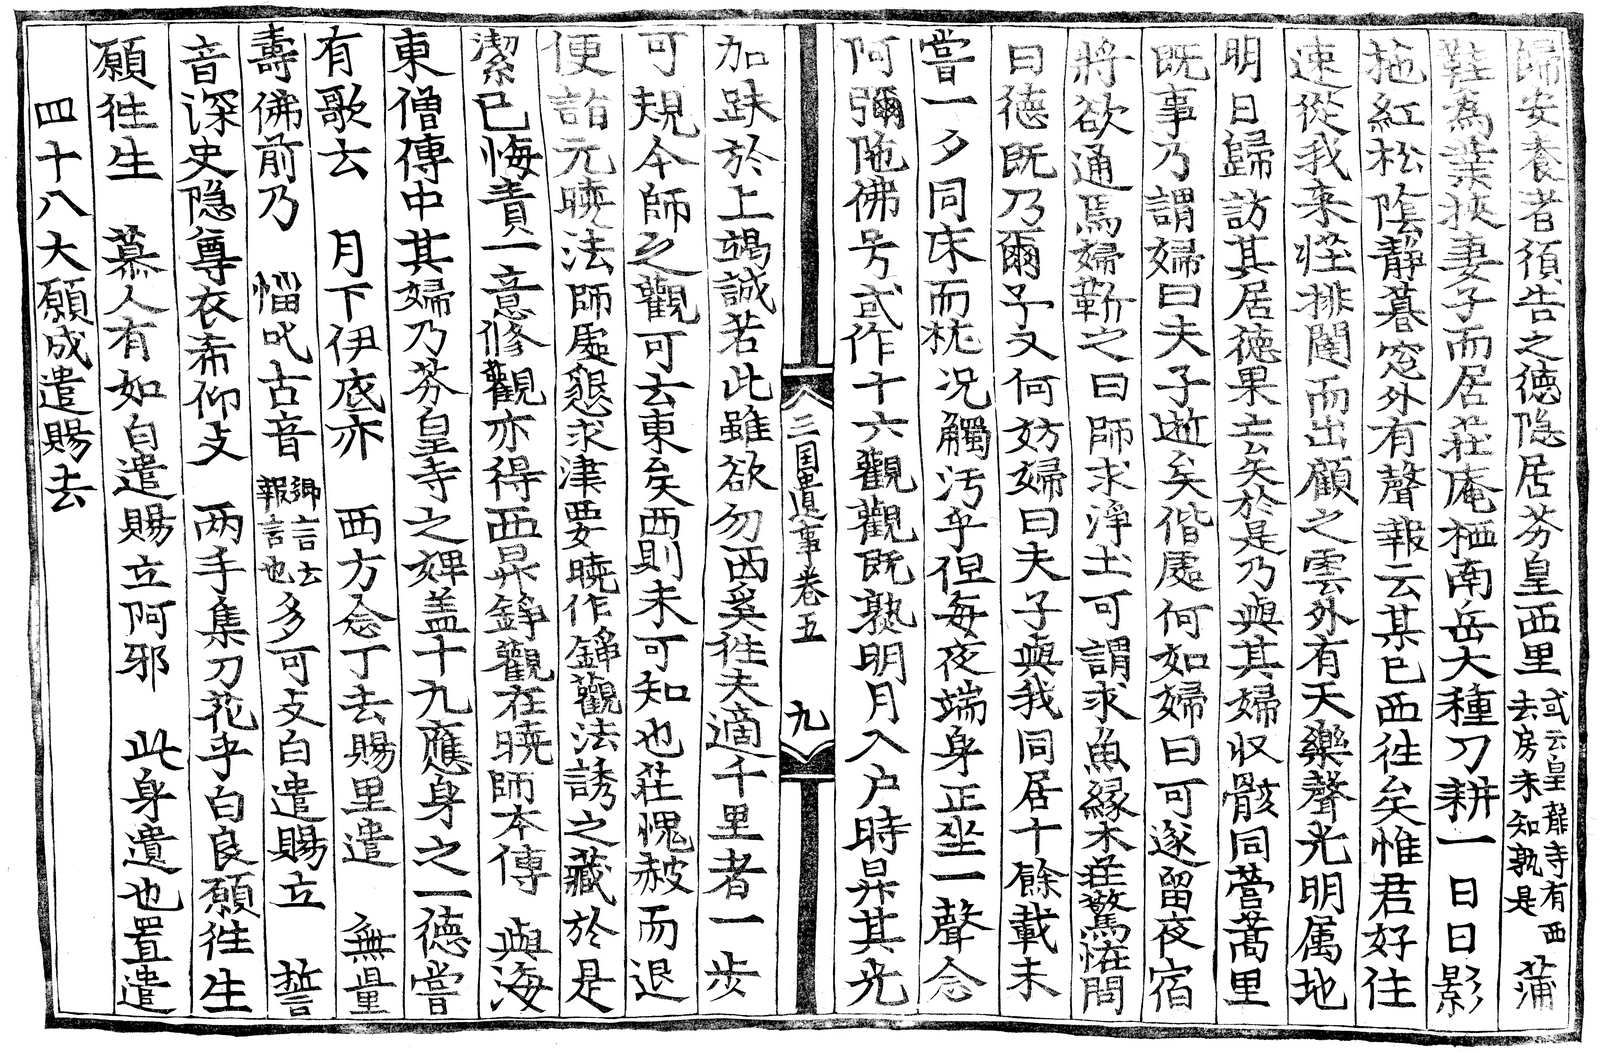 歸安養者須告之德隐居芬皇西里 或云皇龍寺有西去房未知孰是 蒲
鞋為業挾妻子而居荘庵栖南岳大種刀耕一日日影
拖紅松陰靜暮窓外有聲報云某已西徃矣惟君好住
速從我来荘排闥而出顧之雲外有天樂聲光明属地
明日歸訪其居德果亡矣於是乃與其婦収骸同營蒿里
既事乃謂婦曰夫子逝矣偕處何如婦曰可遂留夜宿
將欲通焉婦靳之曰師求淨土可謂求魚緣木荘驚恠問
曰德既乃爾予又何妨婦曰夫子與我同居十餘載未
甞一夕同床而枕况觸汚乎但每夜端身正坐一聲念
阿彌陁佛号或作十六觀觀既熟明月入户時昇其光
三囯遺事卷五　九
加趺於上竭誠若此雖欲勿西奚徃夫適千里者一步
可規今師之觀可云東矣西則未可知也荘愧赧而退
便詣元曉法師處懇求津要曉作錚觀法誘之藏於是
潔已悔責一意修觀亦得西昇錚觀在曉師本傳　與海
東僧傳中其婦乃芬皇寺之婢盖十九應身之一德甞
有歌云　月下伊底亦　西方念丁去賜里遣　無量
壽佛前乃　惱叱古音 鄕言云報言也 多可攴白遣賜立　誓
音深史隐尊衣希仰攴　两手集刀花乎白良願徃生
願徃生　慕人有如白遣賜立阿邪　此身遺也置遣
四十八大願成遣賜去